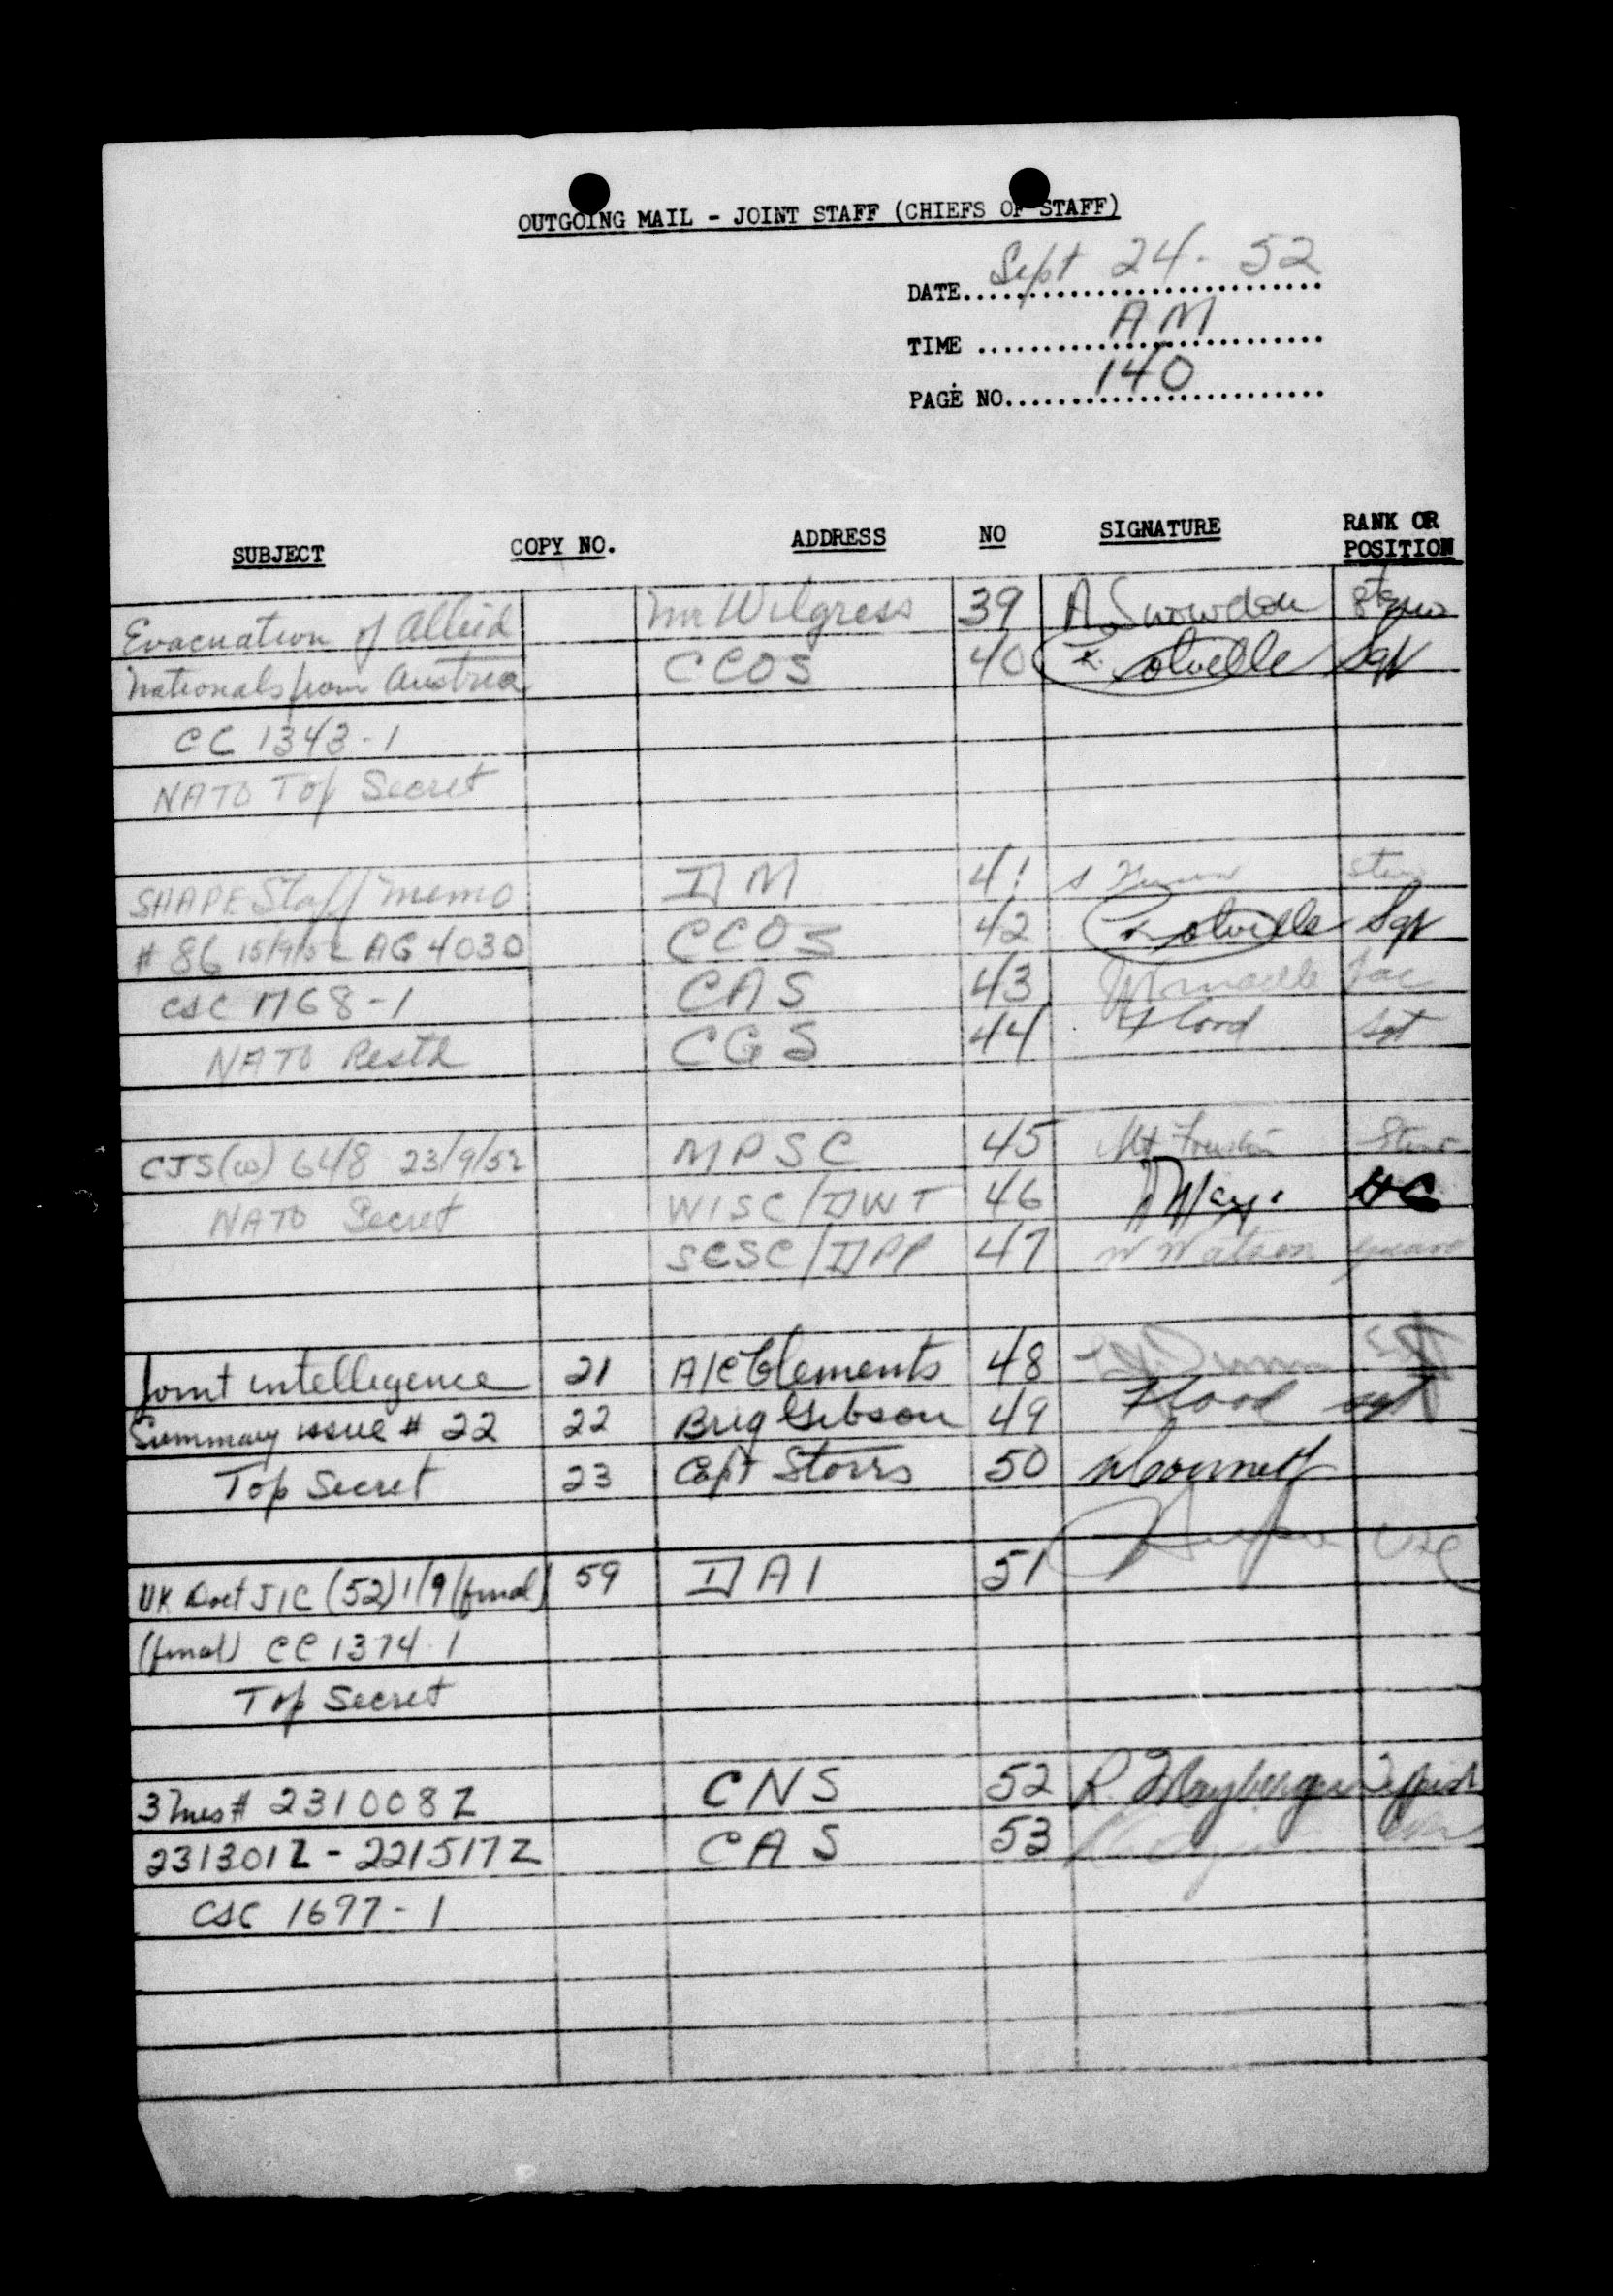 OUTGOING MAIL - JOINT STAFF (CHIEFS OF STAFF)
DATE Sept 24 - 52
TIME AM
PAGE NO. 140
SUBJECT COPY NO. ADDRESS NO SIGNATURE RANK OR POSITION
Evacuation of Allied Mr Wilgress 39 A. Snowdon Steno
Nationals from Austria CCOS 40 Sgt
CC 1343-1
NATO Top Secret
SHAPE Staff Memo DM 41
# 86 15/9/52 AG 4030 CCOS 42 Sgt
CSC 1768-1 CAS 43
NATO Restd CGS 44 Flood Sgt
CJS(W) 648 23/9/52 MPSC 45
NATO Secret WISC/DWT 46
SCSC/DPP 47 W Watson
Joint Intelligence 21 A/C Clements 48
Summary issue # 22 22 Brig Gibson 49 Flood Sgt
Top Secret 23 Capt Storrs 50
UK Doct JIC (52) 1/9 (final) 59 DAI 51
(final) CC 1374-1
Top Secret
3 Mes # 231008Z CNS 52 R.
231301Z - 221517Z CAS 53
CSC 1697-1